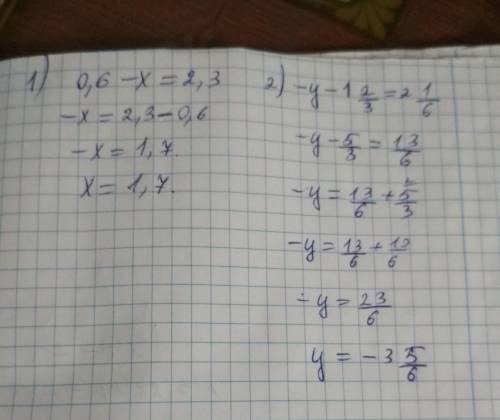 1) 0,6 - x = 2,3
-x = 2,3 - 0,6
-x = 1,7.
x = 1,7.
2) -y - 1 2/3 = 2 1/6
-y - 5/3 = 13/6
-y = 13/6 + 5/3
-y = 13/6 + 10/6
-y = 23/6
y = -3 5/6